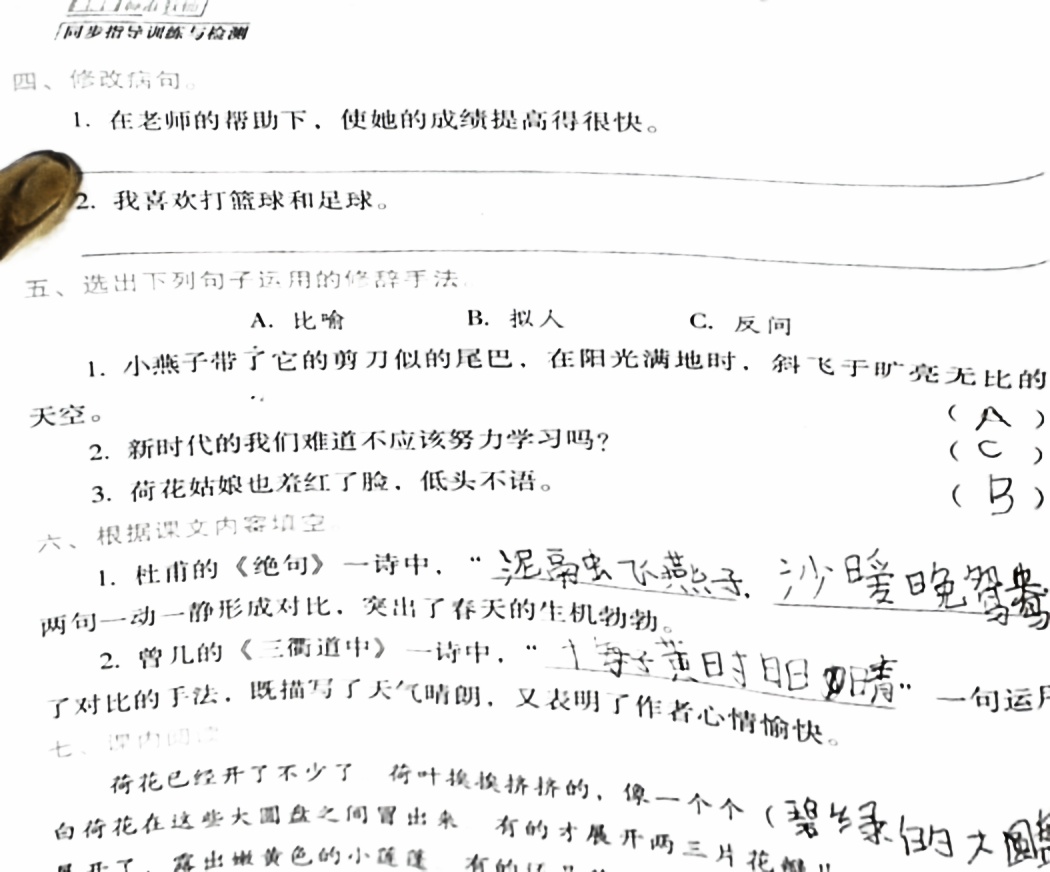 同步指导训练与检测
四、修改病句。
1. 在老师的帮助下，使她的成绩提高得很快。
2. 我喜欢打篮球和足球。
五、选出下列句子运用的修辞手法
A. 比喻 B. 拟人 C. 反问
1. 小燕子带了它的剪刀似的尾巴，在阳光满地时，斜飞于旷亮无比的
天空。 ( A )
2. 新时代的我们难道不应该努力学习吗? ( C )
3. 荷花姑娘也羞红了脸，低头不语。 ( B )
六、根据课文内容填空
1. 杜甫的《绝句》一诗中，“泥融飞燕子，沙暖晚鸳鸯
两句一动一静形成对比，突出了春天的生机勃勃。
2. 曾几的《三衢道中》一诗中，“子黄时日日晴” 一句运用
了对比的手法，既描写了天气晴朗，又表明了作者心情愉快。
七、课内阅读
荷花已经开了不少了 荷叶挨挨挤挤的，像一个个(碧绿的大圆
白荷花在这些大圆盘之间冒出来 有的才展开两三片花瓣
展开了，露出嫩黄色的小莲蓬 有的还